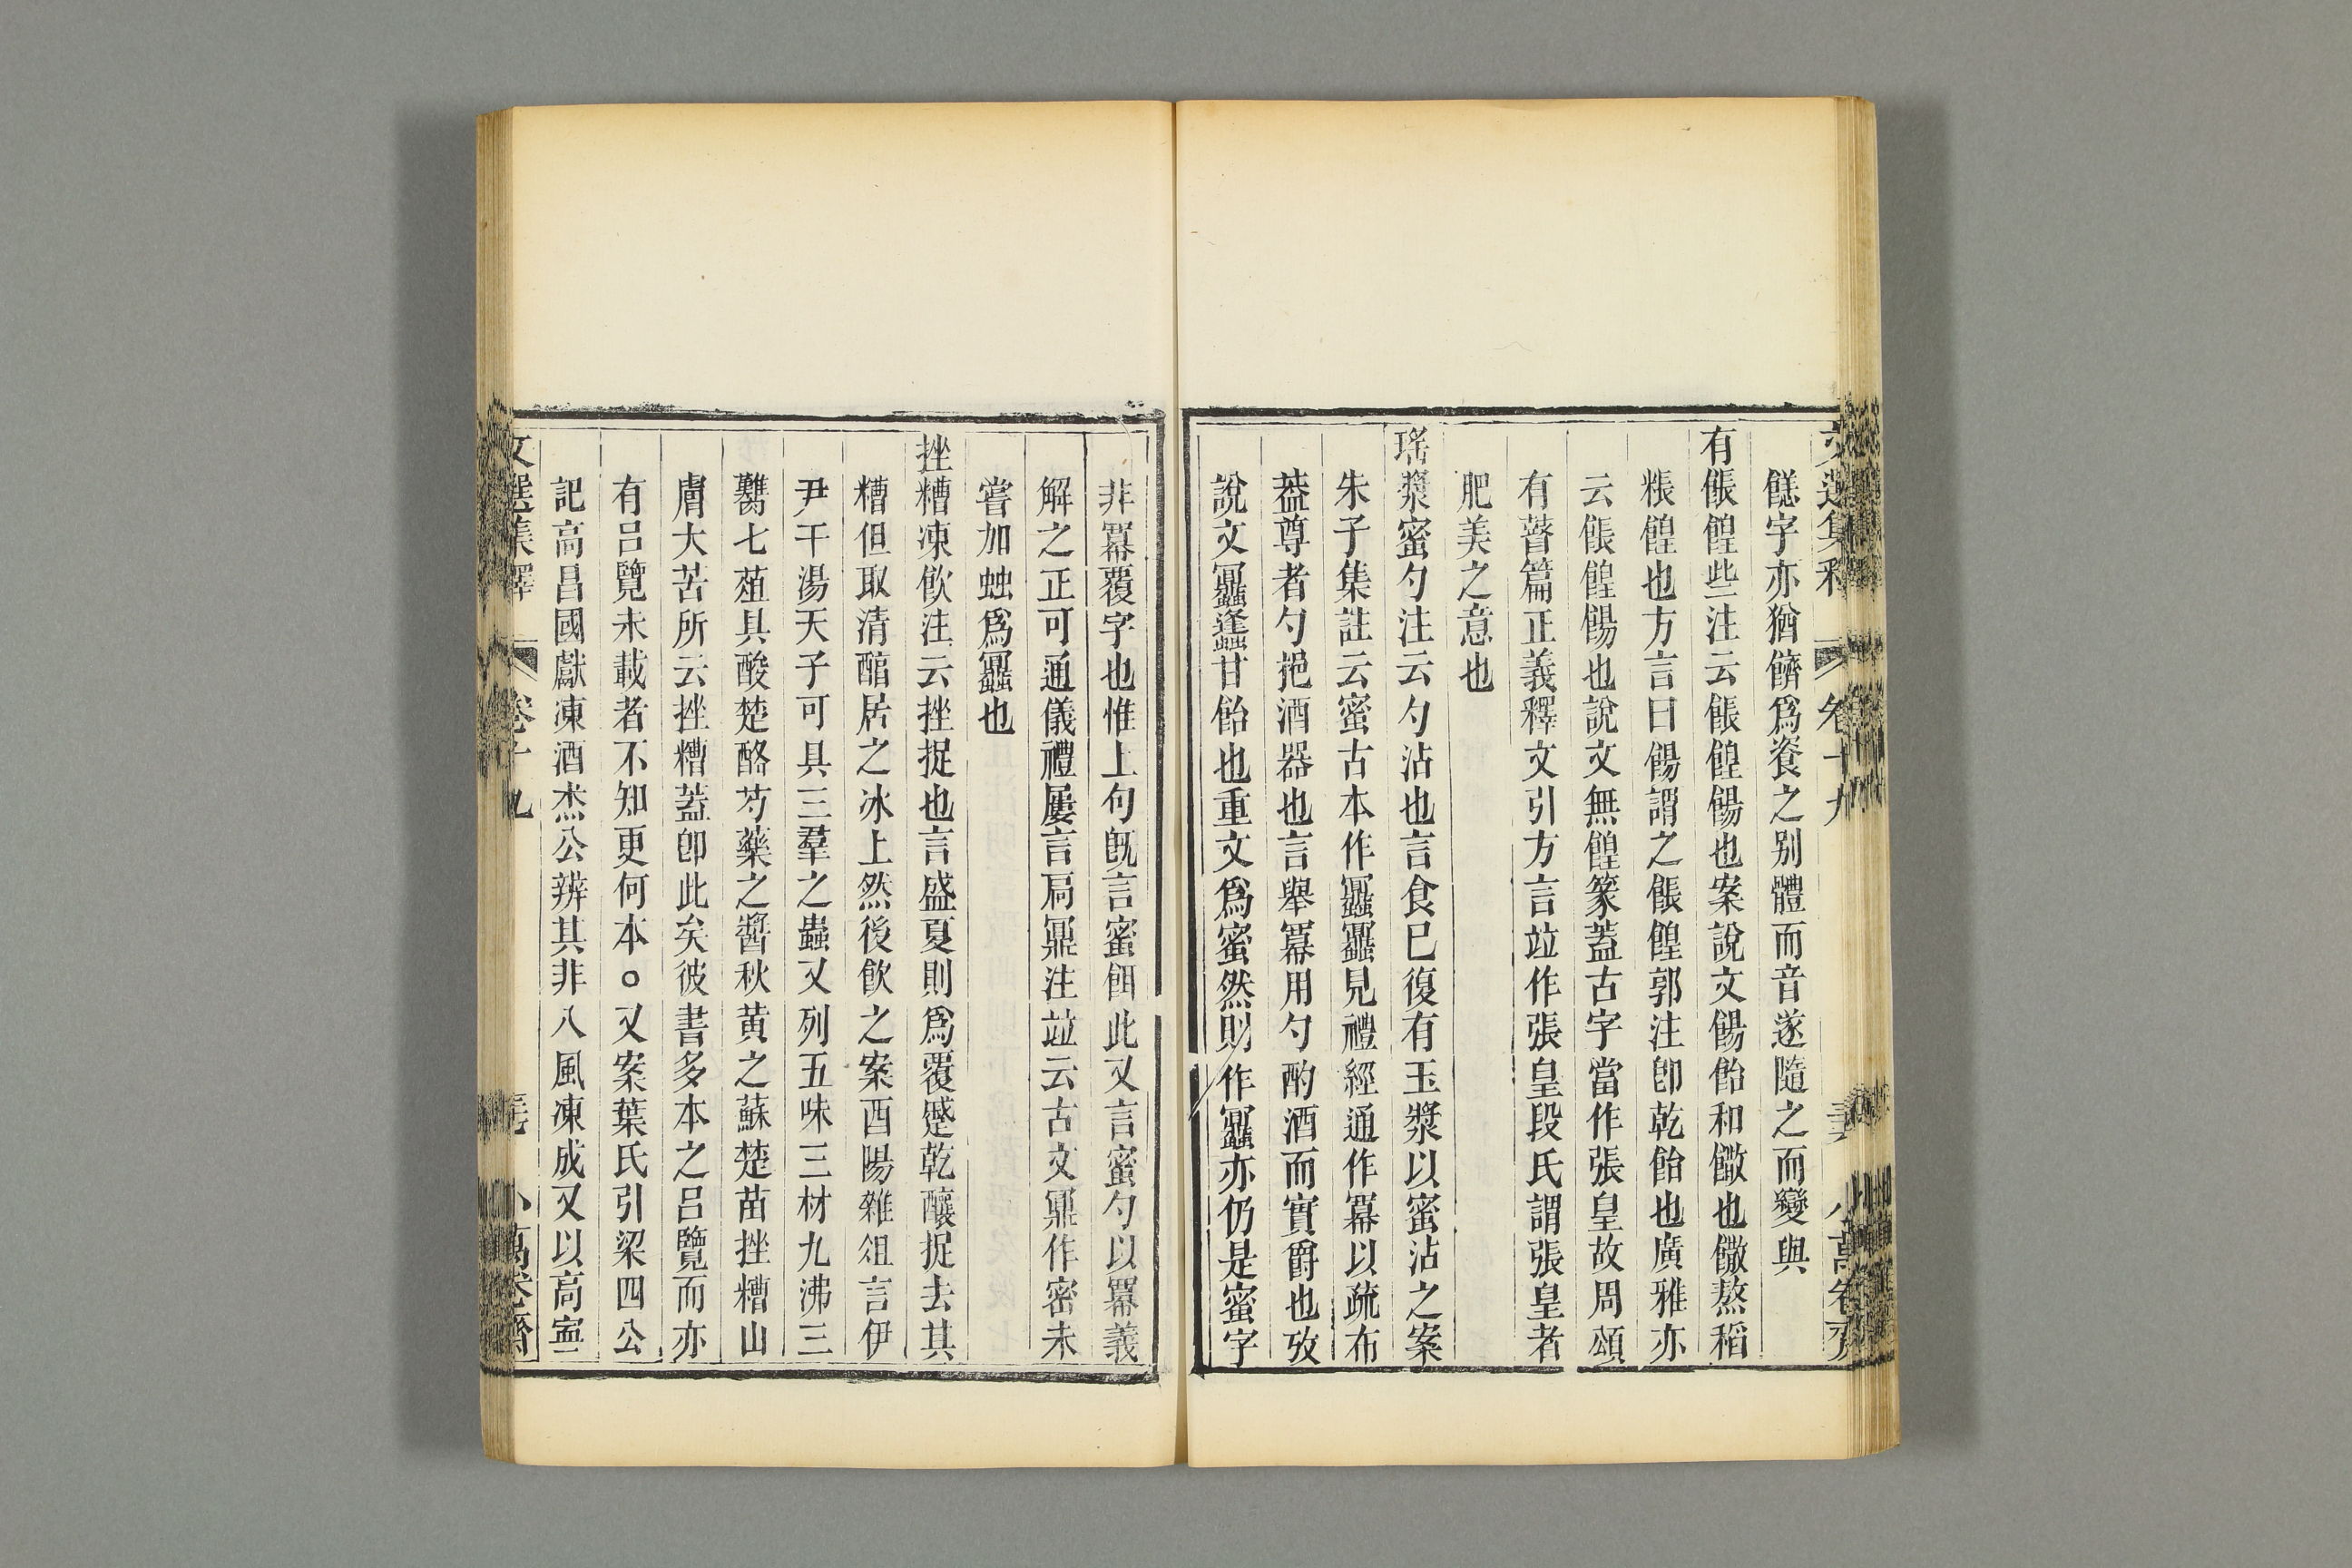 餻字亦猶餴爲餈之別體而音遂隨之而變與
有餦餭些注云餦餭餳也案說文餳飴和饊也饊熬稻
粻餭也方言曰餳謂之餦餭郭注卽乾飴也廣雅亦
云餦餭餳也說文無餭篆蓋古字當作張皇故周頌
有瞽篇正義釋文引方言竝作張皇段氏謂張皇者
肥美之意也
瑤漿蜜勺注云勺沾也言食已復有玉漿以蜜沾之案
朱子集註云蜜古本作䵑䵑見禮經通作冪以疏布
葢尊者勺挹酒器也言舉冪用勺酌酒而實爵也攷
說文䵑䗬甘飴也重文爲蜜然則作䵑亦仍是蜜字
非冪覆字也惟上句旣言蜜餌此又言蜜勺以冪義
解之正可通儀禮屢言扃鼏注竝云古文鼏作密未
嘗加䖵爲䵑也
挫糟凍飮注云挫捉也言盛夏則爲覆蹙乾釀捉去其
糟但取清醇居之冰上然後飮之案酉陽雜俎言伊
尹干湯天子可具三羣之蟲又列五味三材九沸三
臡七菹具酸楚酪芍藥之醬秋黃之蘇楚苗挫糟山
膚大苦所云挫糟蓋卽此矣彼書多本之呂覽而亦
有呂覽未載者不知更何本○又案葉氏引梁四公
記高昌國獻凍酒杰公辨其非八風凍成又以高寧
文選集釋 卷十九 小萬卷齋